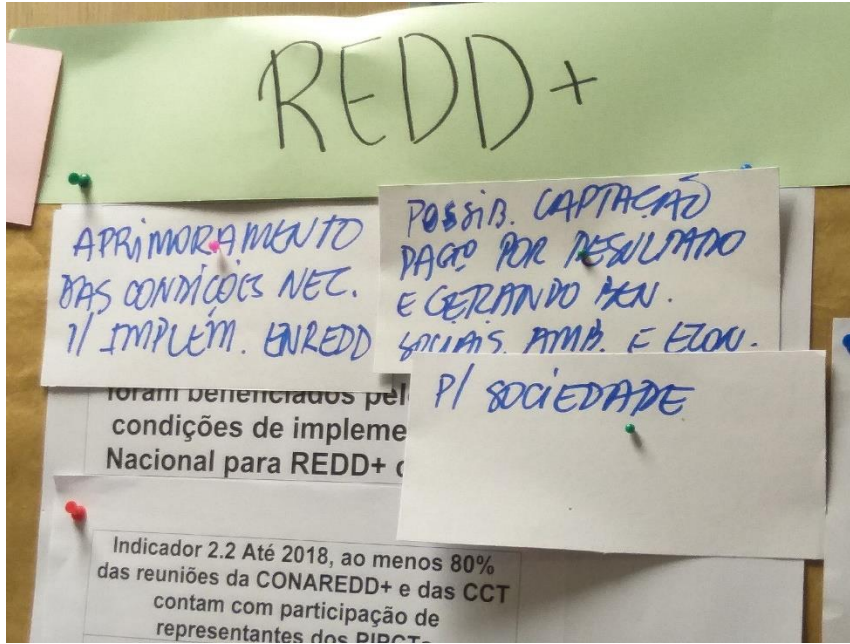 REDD+
APRIMORAMENTO
DAS CONDIÇÕES NEC.
P/ IMPLEM. ENREDD
POSSIB. CAPTAÇÃO
PAGTO POR RESULTADO
E GERANDO BEN.
SOCIAIS. AMB. E ECON.
P/ SOCIEDADE
foram beneficiados pel
condições de impleme
Nacional para REDD+
Indicador 2.2 Até 2018, ao menos 80%
das reuniões da CONAREDD+ e das CCT
contam com participação de
representantes dos PIPCTs